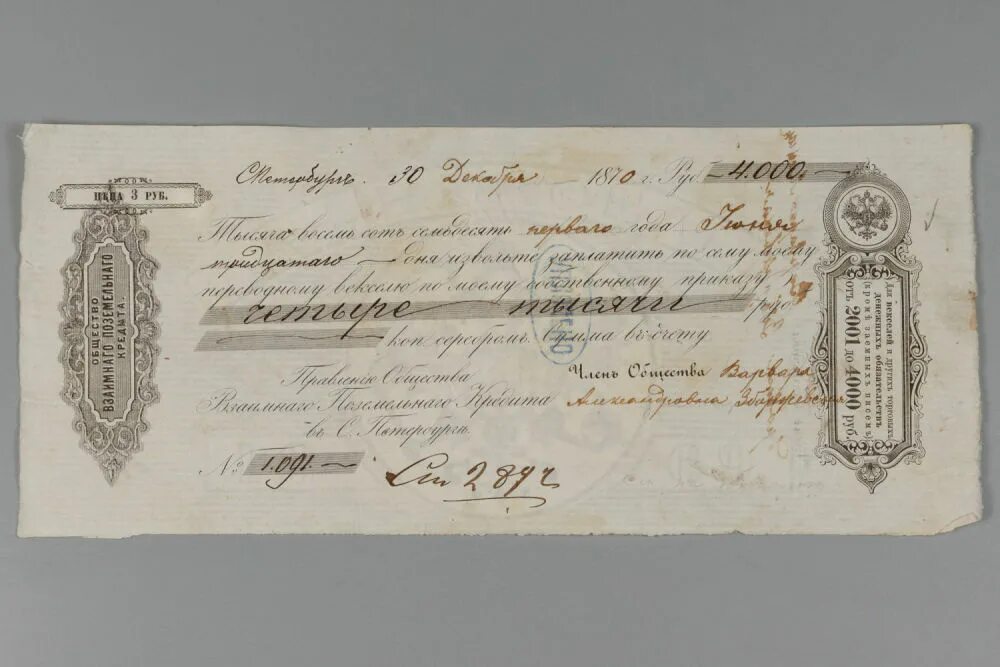 С.Петербургъ. 30 Декабря 1870 г. Руб. 4.000.
ЦѢНА 3 РУБ.
ОБЩЕСТВО
ВЗАИМНАГО ПОЗЕМЕЛЬНАГО
КРЕДИТА.
Тысяча восемь сотъ семьдесятъ перваго года Іюня
тридцатаго дня извольте заплатить по сему моему
переводному векселю по моему собственному приказу
четыре тысячи руб.
коп. серебромъ. сумма въ счету
Правленію Общества
Взаимнаго Поземельнаго Кредита
въ С. Петербургѣ.
Членъ Общества Варвара
Александровна
№ 1.091.
2892
Для векселей и другихъ торговыхъ
денежныхъ обязательствъ
(кромѣ заемныхъ писемъ)
отъ 2001 до 4000 руб.